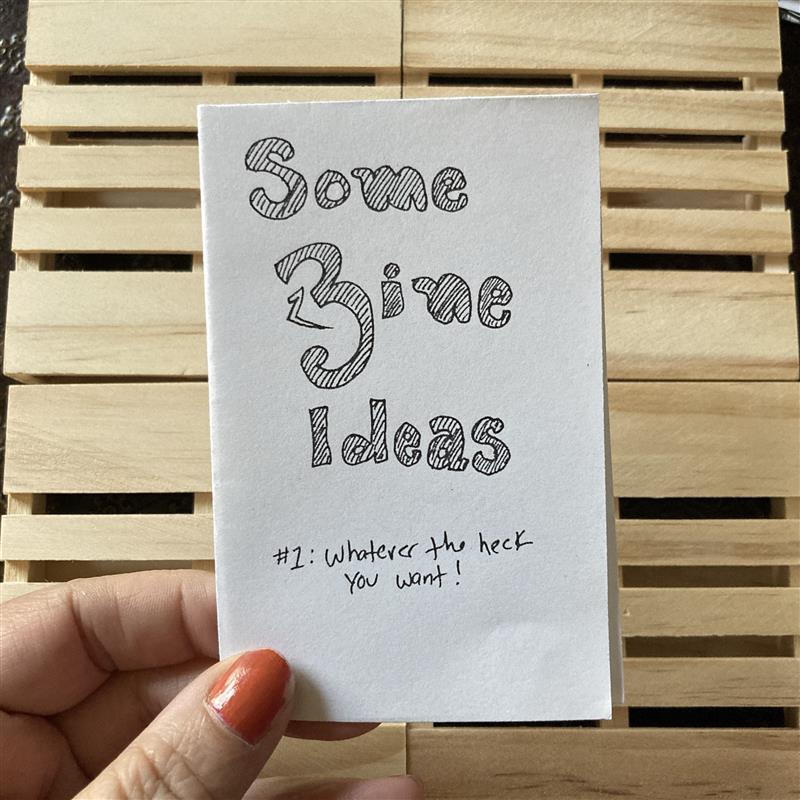 Some
Zine
Ideas
#1: Whatever the heck
you want!